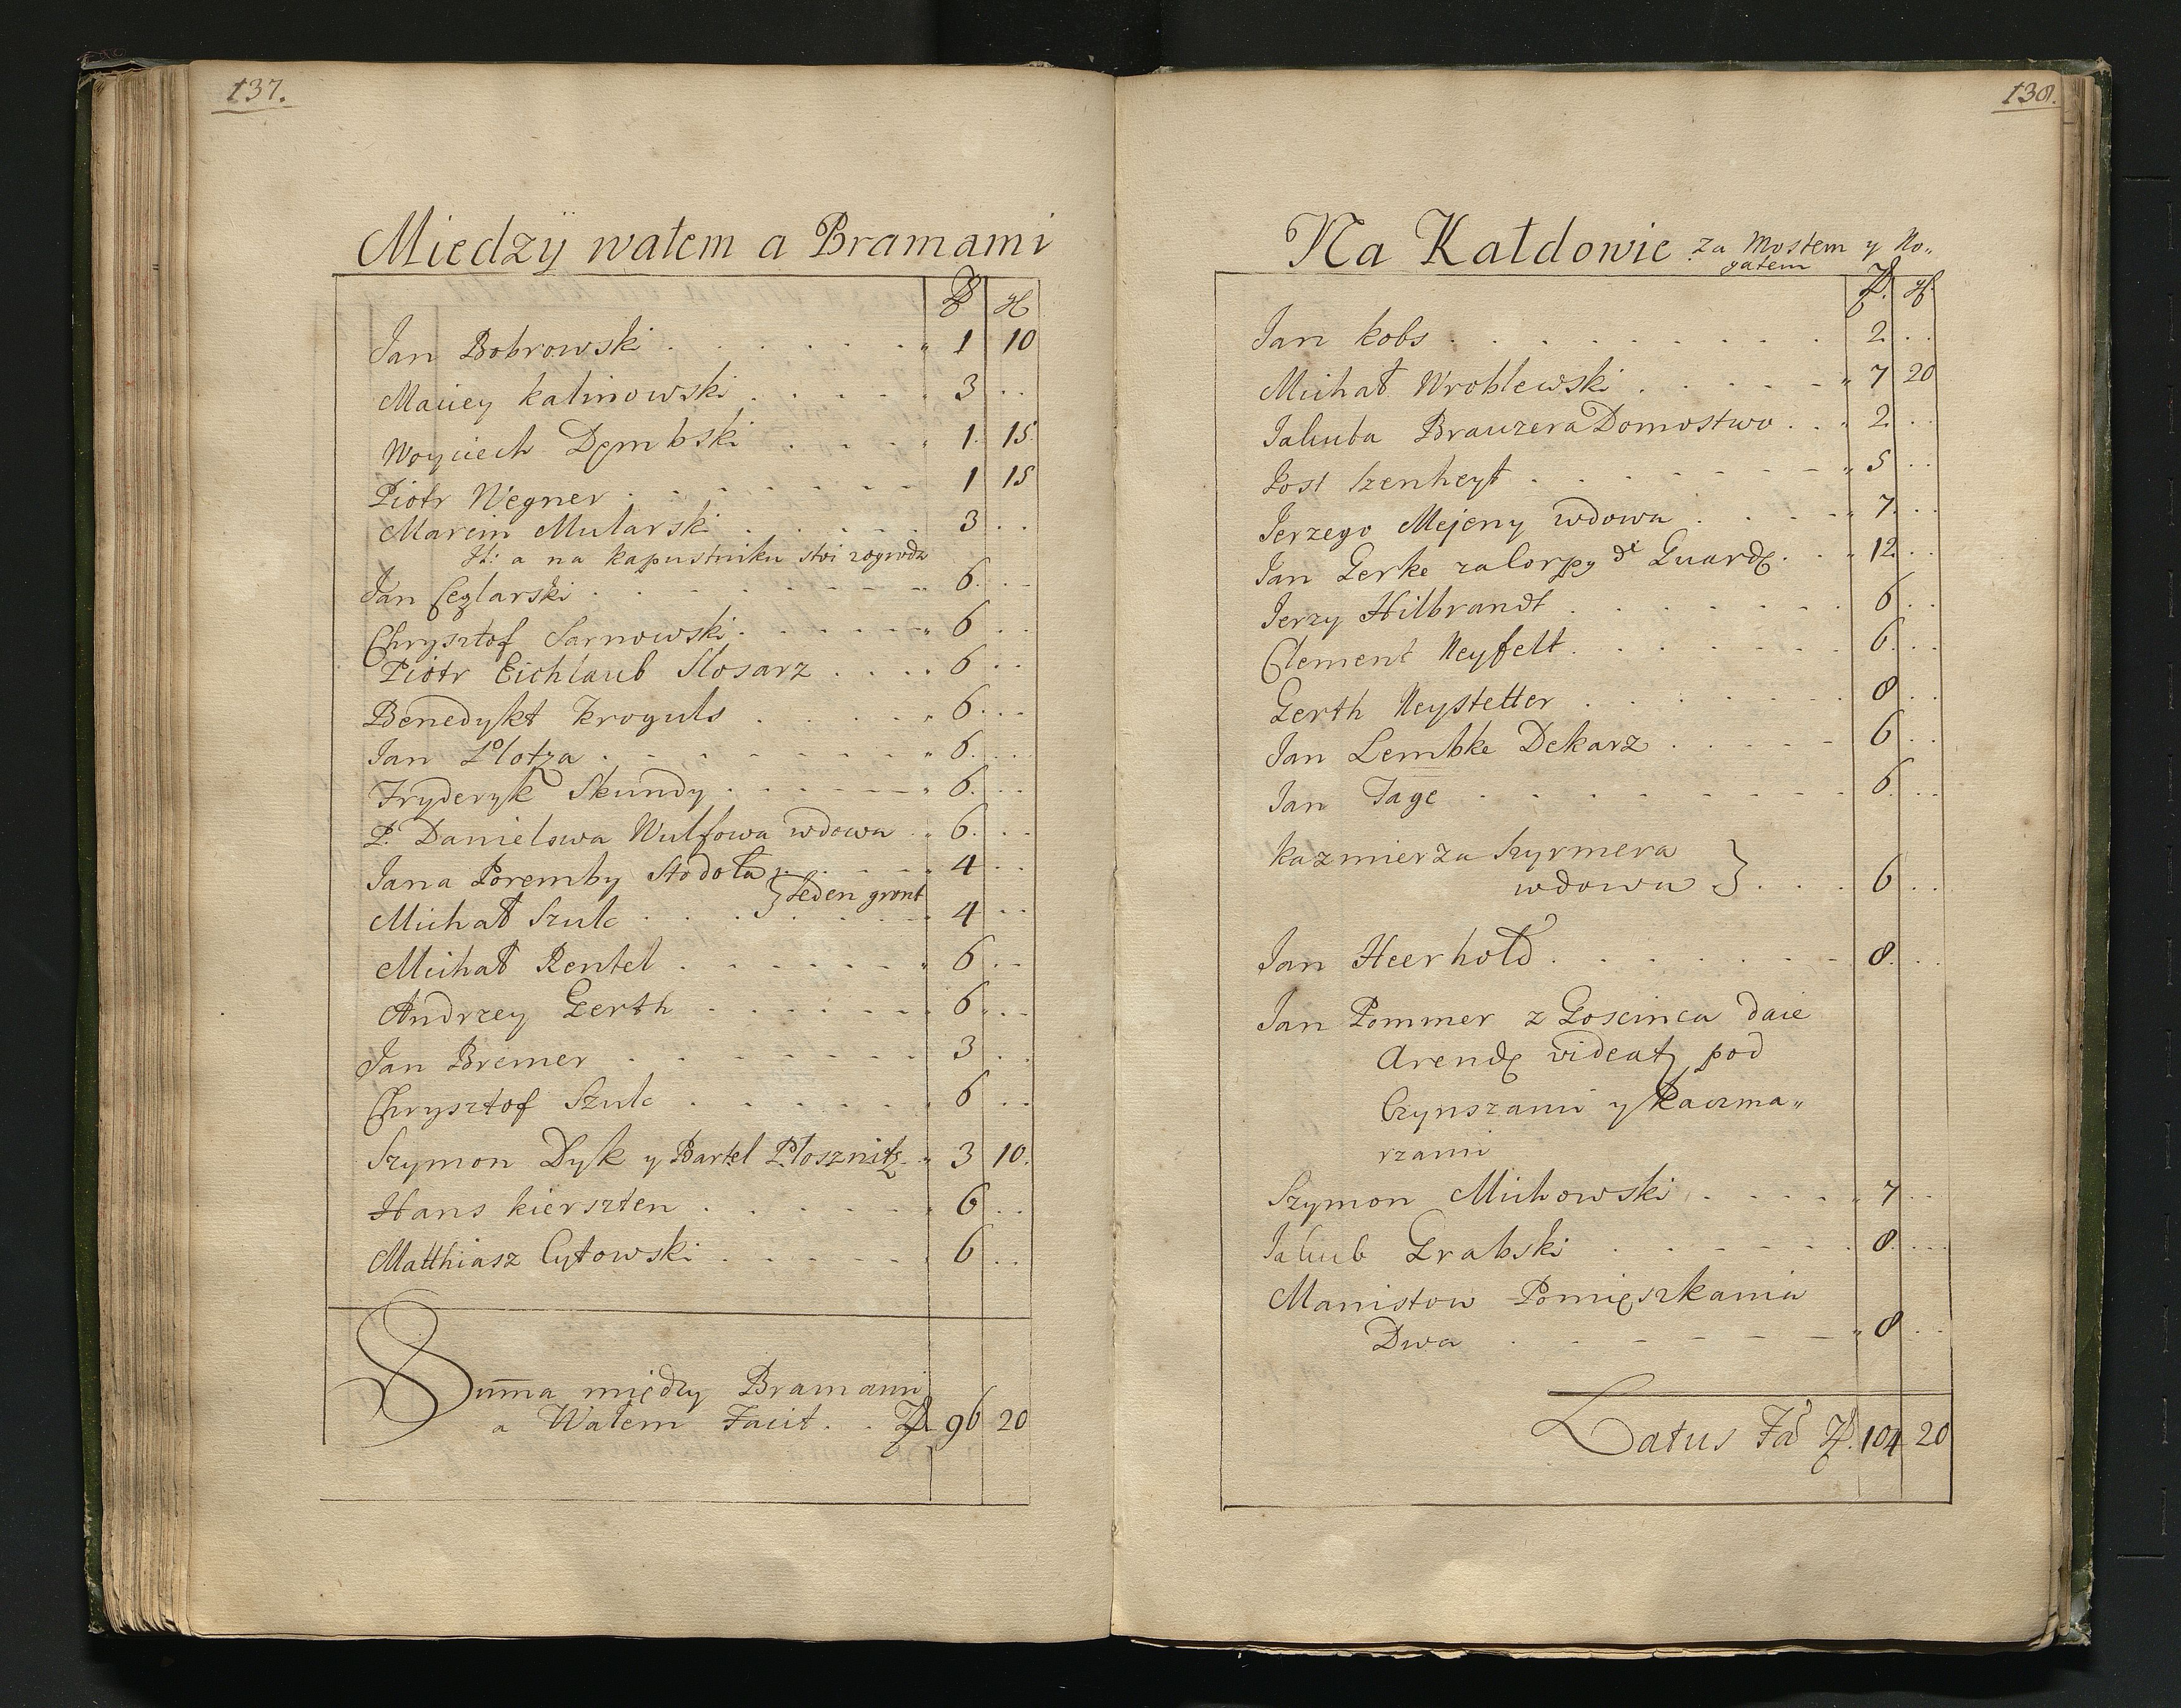 137.
Miedzÿ wałem a Bramami
Jan Bobrowski . . . . . . 1 10
Maciey Kalinowski . . . . . 3 . .
Woyciech Dęmbski . . . . 1. 15.
Piotr Wegner . . . . . . . 1 15
Marcin Mularski . . . . . 3 . .
H: a na Kapustniku stoi zogroda
Jan Ceglarski . . . . . . . 6. . .
Chrysztof Sarnowski . . . . . 6 . .
Piotr Eichlaub Slosarz . . . . 6 . .
Benedykt Kroguls . . . . . 6. . .
Jan Plotza . . . . . . . 6. . .
Fryderyk Skundy . . . . . . 6. . .
P. Danielowa Wulfowa wdowa . . 6. . .
Jana Poremby Stodoła . . . . 4 . .
} Jeden gront
Michał Szulc . . . . . . 4 . .
Michał Rentel . . . . . . 6 . .
Andrzey Gerth . . . . . . 6 . .
Jan Bremer . . . . . . . 3 . .
Chrysztof Szulc . . . . . . 6 . .
Szymon Dyk y Bartel Plosznitz . . 3 10.
Hans Kierszten . . . . . . 6 . .
Matthiasz Cytowski . . . . . 6 . .
Sum̄a między Bramami
a Wałem Facit . . 96 20
138.
Na Kałdowie za Mostem y No„
gatem
Jan Kobs . . . . . . . . . 2. . .
Michał Wroblewski . . . . . 7 20
Jakuba Brauzera Domostwo . . . 2. . .
Jost Izenheyt . . . . . . . 5 . .
Jerzego Mejeny wdowa . . . . 7. . .
Jan Gerke za Corpy di Guardę . . 12. . .
Jerzy Hilbrandt . . . . . . . 6 . .
Clement Neyfelt . . . . . . . 6. . .
Gerth Neystetter . . . . . . 8 . .
Jan Lembke Dekarz . . . . . 6 . .
Jan Tage . . . . . . . . . 6. . .
Kazmierza Szyrmera
wdowa } . . . 6 . .
Jan Heerhold . . . . . . . 8. . .
Jan Pommer z Goscinca daie
Arendę videatz pod
Czynszami y Kaczma„
rzami
Szymon Michowski . . . . . 7 . .
Jakub Grabski . . . . . . . 8. . .
Manistow Pomięszkania
Dwa . . . . . . . 8 . .
Latus Fa 104 20